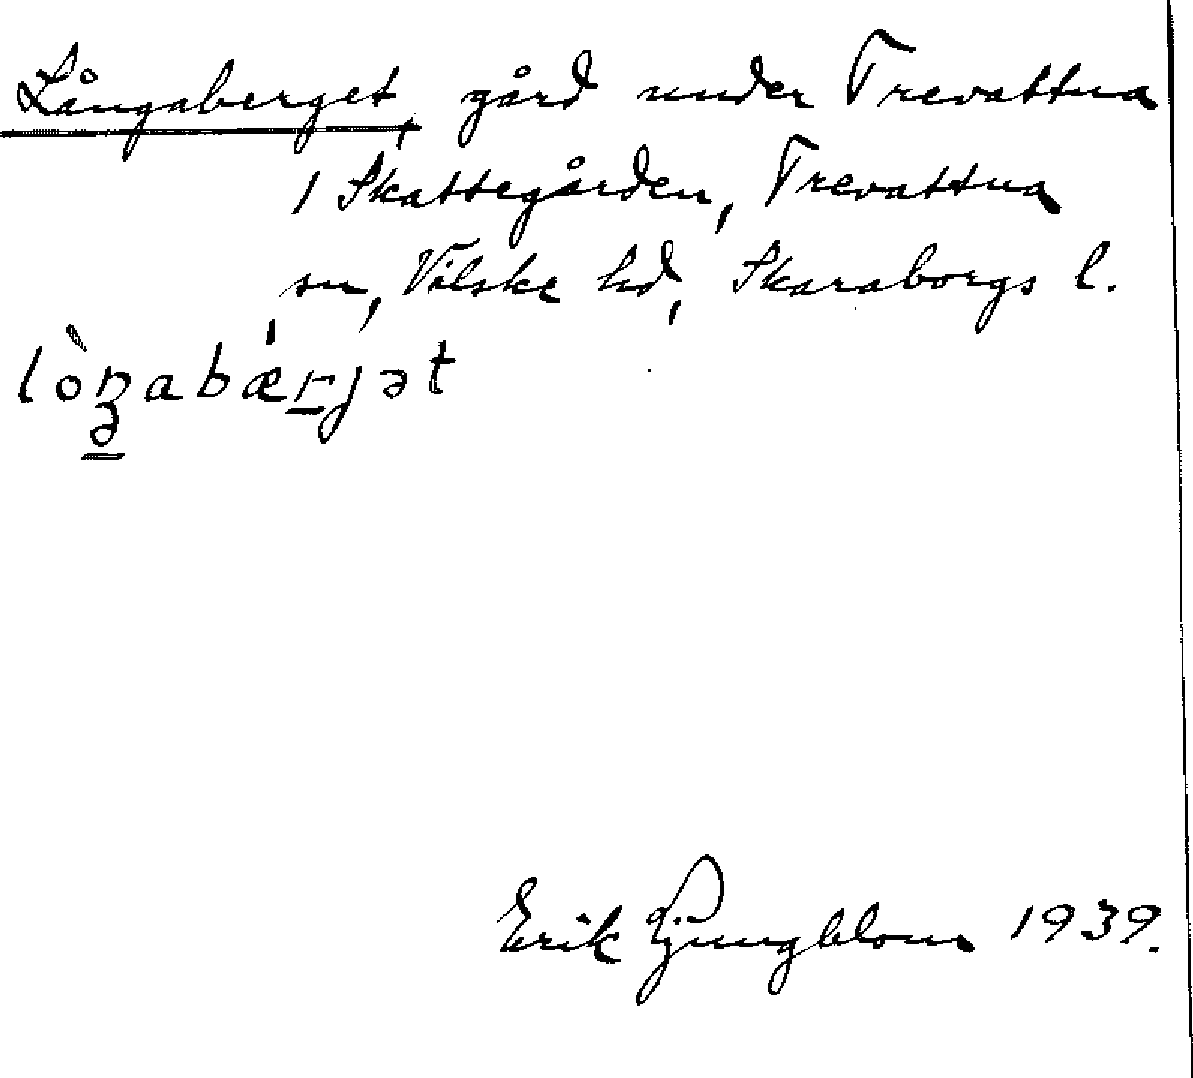 Långaberget, gård under Trevattna
1 Skattegården, Trevattna
sn, Vilske hd, Skaraborgs l.
lòŋabǽrjət
Erik Ljungblom 1939.